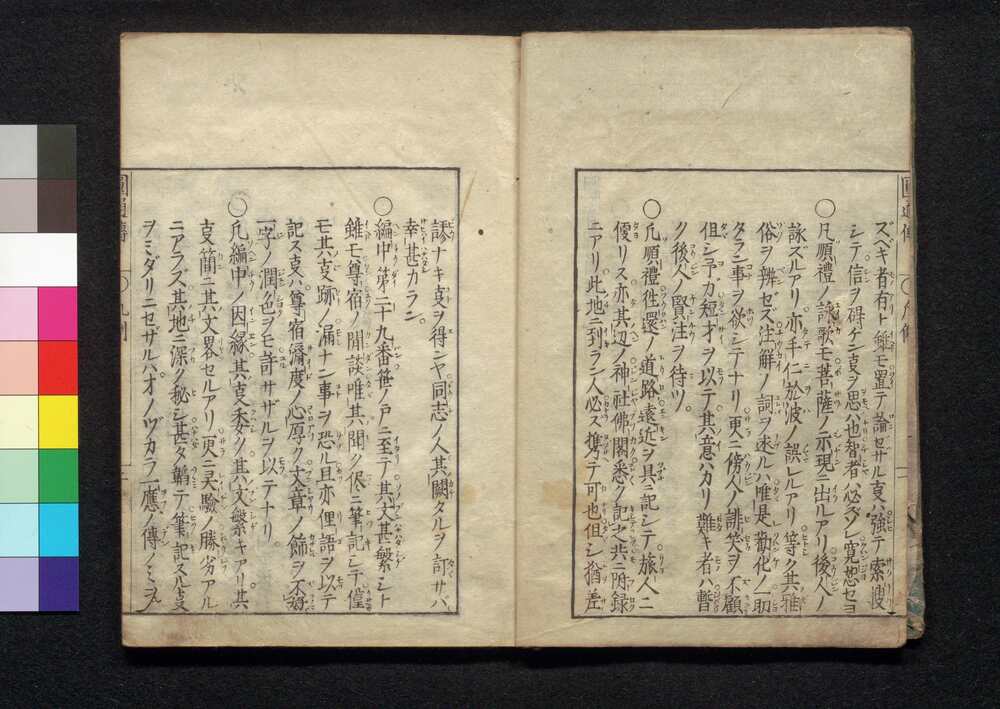 ズベキ者有ト雖モ置テ論ゼザル㕝ハ強テ索捜
シテ信ヲ碍ケン㕝ヲ思ハ也智者必ズシ寛恕セヨ
○凡順禮ノ詠歌モ菩薩ノ示現ニ出ルアリ後人ノ
詠ズルアリ亦千仁於波ノ誤レルアリ等ク其雅
俗ヲ辨ゼズ注解ノ詞ヲ述ルハ唯是勸化ノ一助
タラン事ヲ欲シテナリ更ニ傍人ノ誹笑ヲ不顧
但シ予カ短才ヲ以テ其意ハカリ難キ者ハ暫
ク後人ノ賢注ヲ待ツ。
○凡順禮徃還ノ道路遠近ヲ具ニ記シテ旅人ニ
便リス亦其辺ノ神社佛閣悉ク記之共ニ附録
ニアリ此地ニ到ラン人必ズ携テ可也但シ猶差
謬ナキ㕝ヲ得ンヤ同志ノ人其闕タルヲ訂サバ
幸甚カラン。
○編中第二十九番笹ノ戸ニ至テ其文甚繁シト
雖モ尊宿ノ閒談唯其聞ク侭ニ筆記シテ僅
モ其㕝跡ノ漏ナン事ヲ恐ル且亦俚語ヲ以テ
記ス㕝ハ尊宿濟度ノ心厚ク文章ノ飾ヲ不好
一字ノ潤色ヲモ許サザルヲ以テナリ
○凡編中ノ因縁其㕝委ノ其文繁キアリ其
㕝簡ニ其文畧セルアリ更ニ灵驗ノ勝劣アル
ニアラズ其地ニ深ノ秘シ甚タ韜テ筆記スル㕝
ヲミダリニセザルバオノヅカラ一應ノ傳ノミ